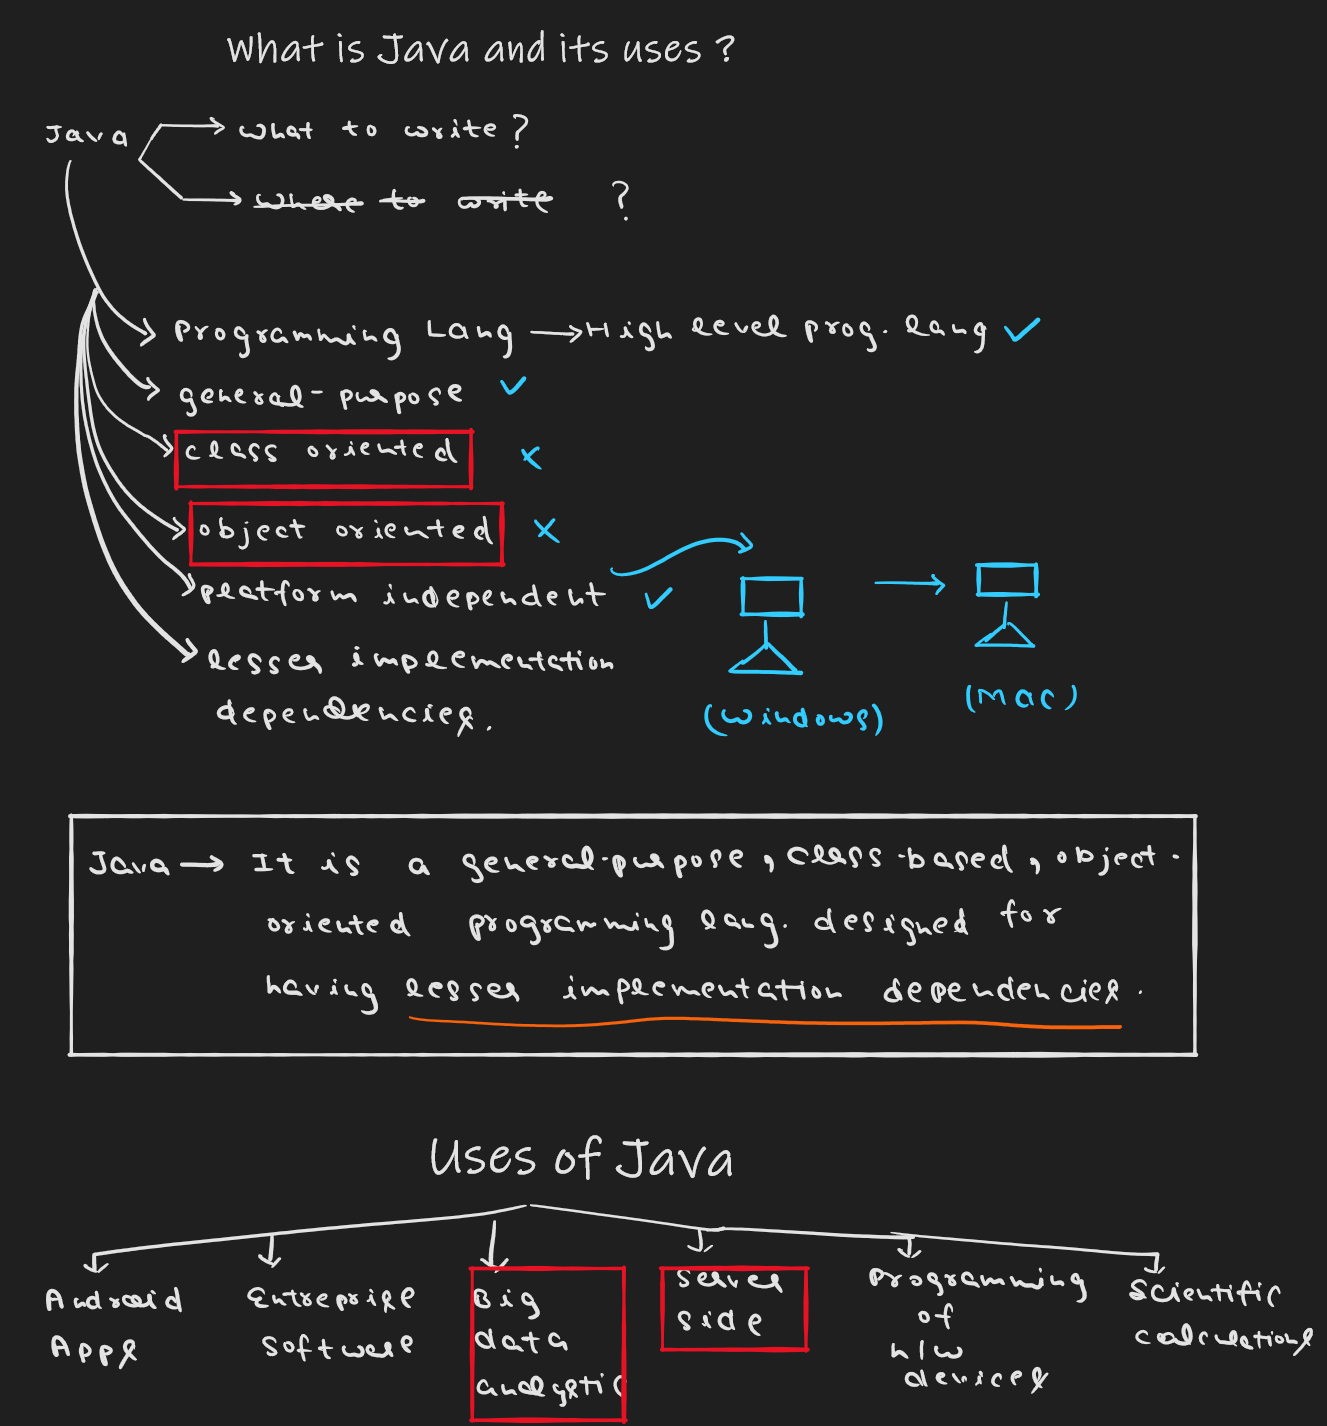 What is Java and its uses ?
Java
what to write?
where to write ?
Programming Lang → High level prog. lang ✓
general-purpose ✓
class oriented ×
object oriented ×
platform independent ✓
lesser implementation
dependencies.
(windows)
(Mac)
Java → It is a general-purpose, class-based, object-
oriented programming lang. designed for
having lesser implementation dependencies.
Uses of Java
Android
Apps
Entreprise
Software
Big
data
analytic
Server
side
Programming
of
h/w
devices
Scientific
calculations